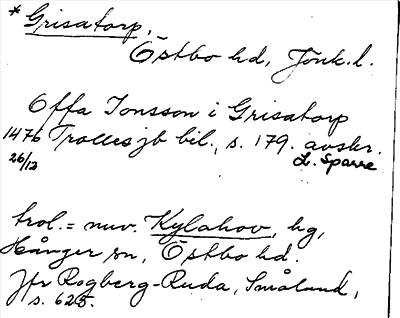 * Grisatorp,
Östbo hd, Jönk. l.
Offa Jonsson i Grisatorp
1476 Trolles jb bil., s. 179. avskr.
26/12 L. Sparre
trol. = nuv. Kylahov, hg,
Hånger sn, Östbo hd.
Jfr Rogberg-Ruda, Småland,
s. 625.